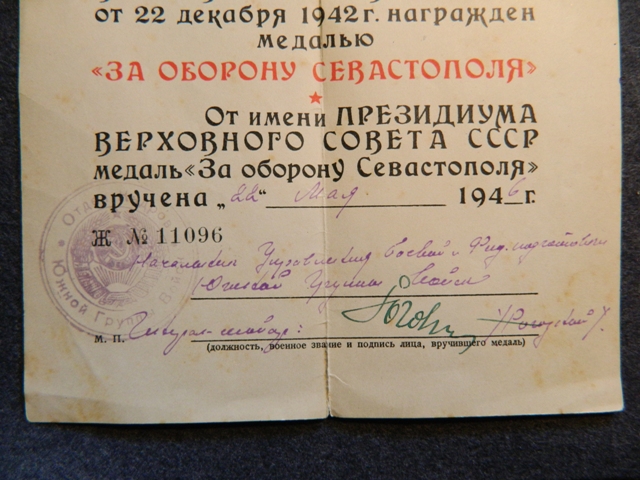 от 22 декабря 1942 г. награжден
медалью
«ЗА ОБОРОНУ СЕВАСТОПОЛЯ»
От имени ПРЕЗИДИУМА
ВЕРХОВНОГО СОВЕТА СССР
медаль «За оборону Севастополя»
вручена „22“ Мая 1946 г.
Ж № 11096
Начальник Управления боевой и Физ.подготовки
Южной Группы Войск
Генерал-майор:
М. П.
(должность, военное звание и подпись лица, вручившего медаль)
Южной Группы